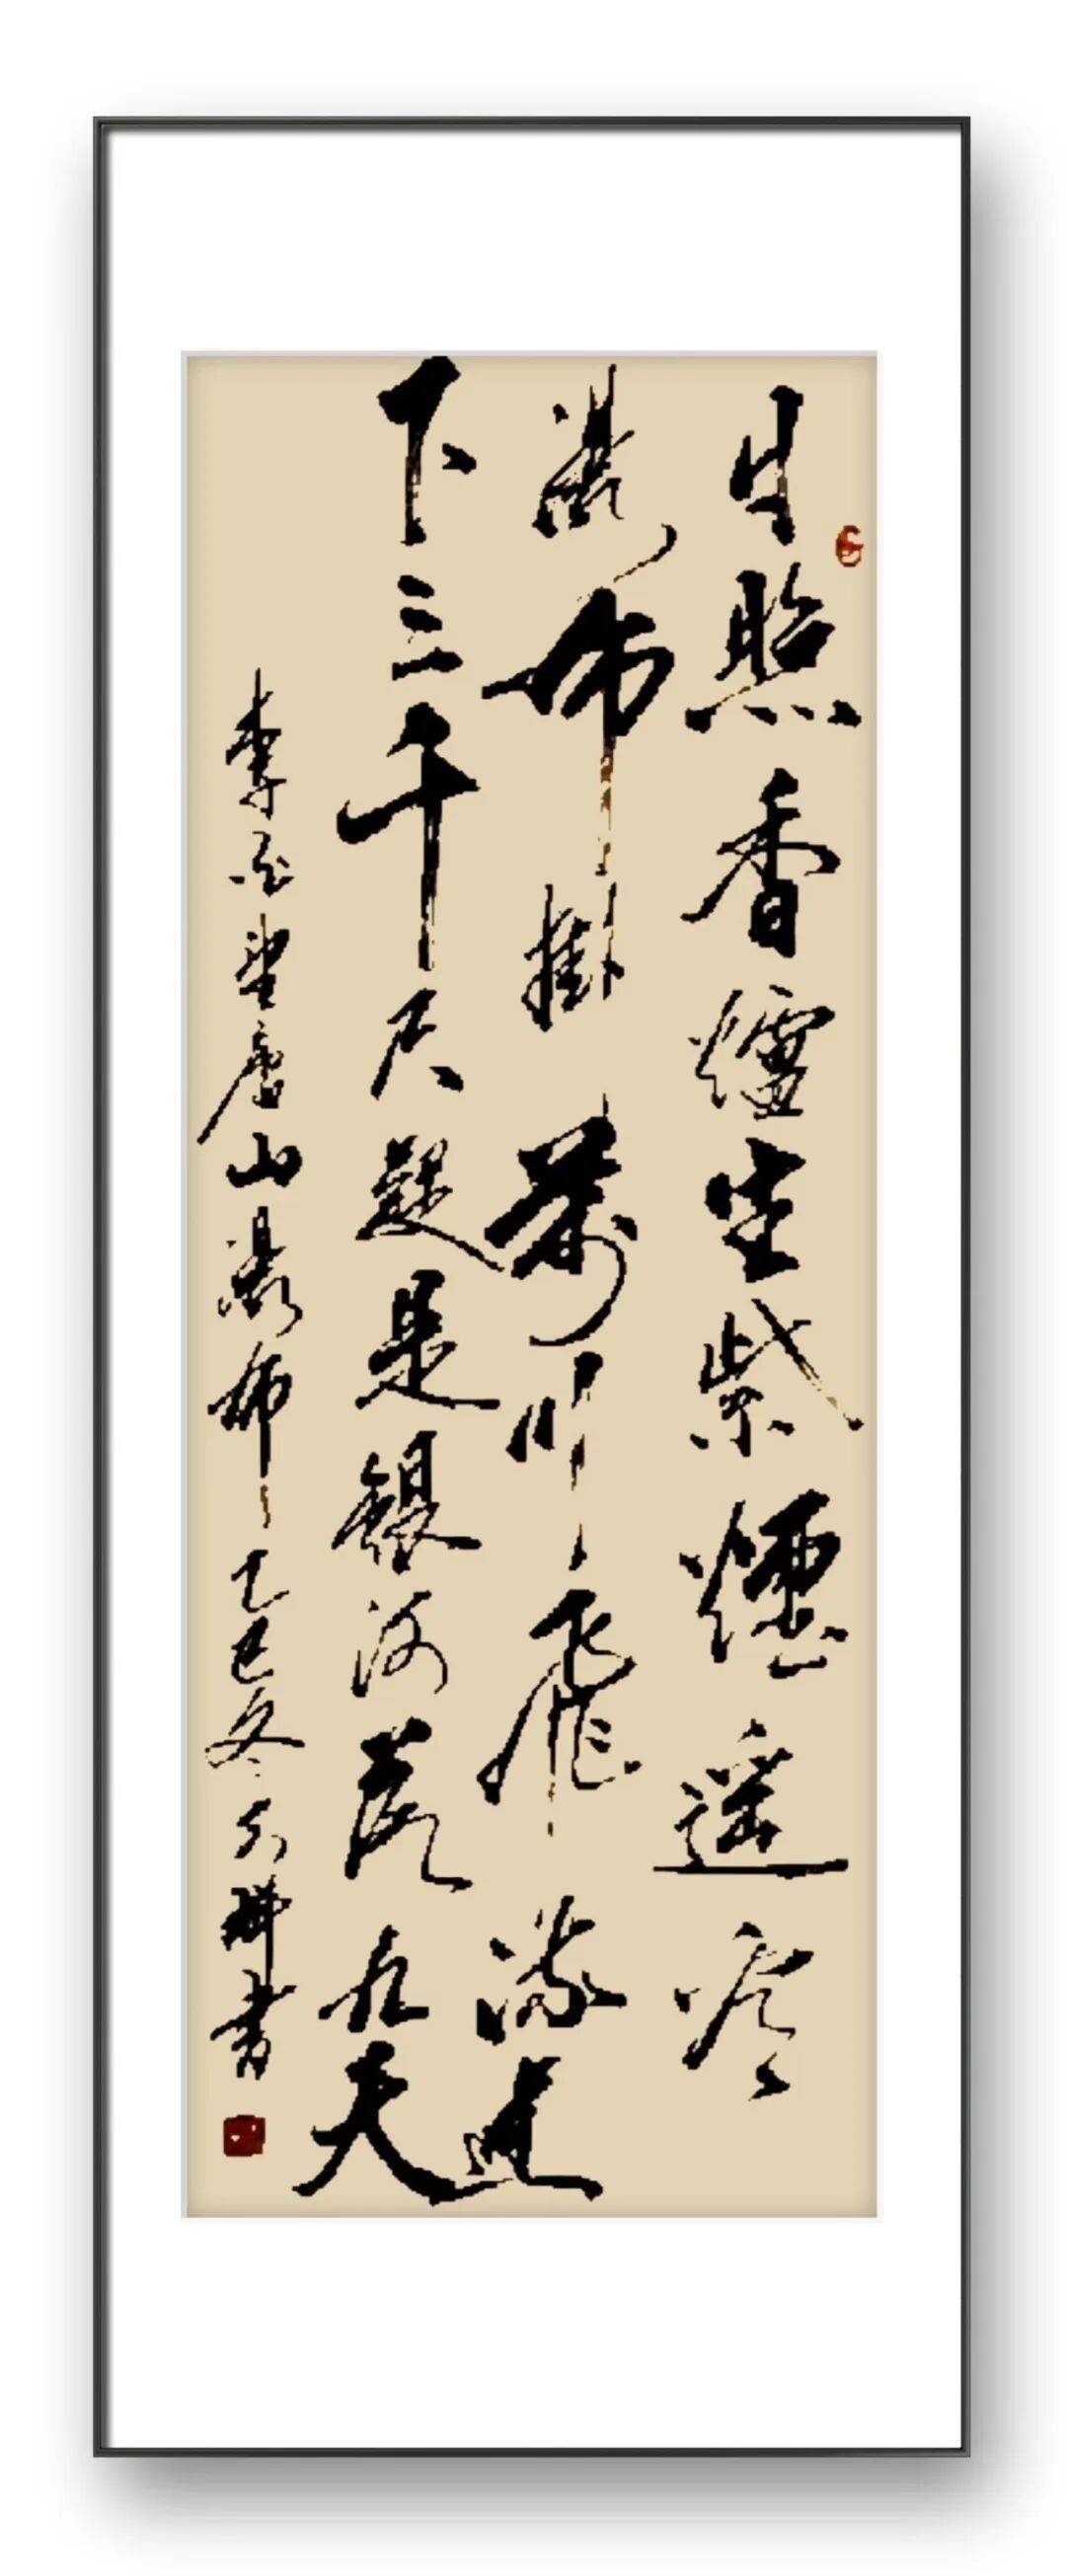 日照香爐生紫煙遙看
瀑布掛前川飛流直
下三千尺疑是銀河落九天
李白望廬山瀑布乙巳冬書